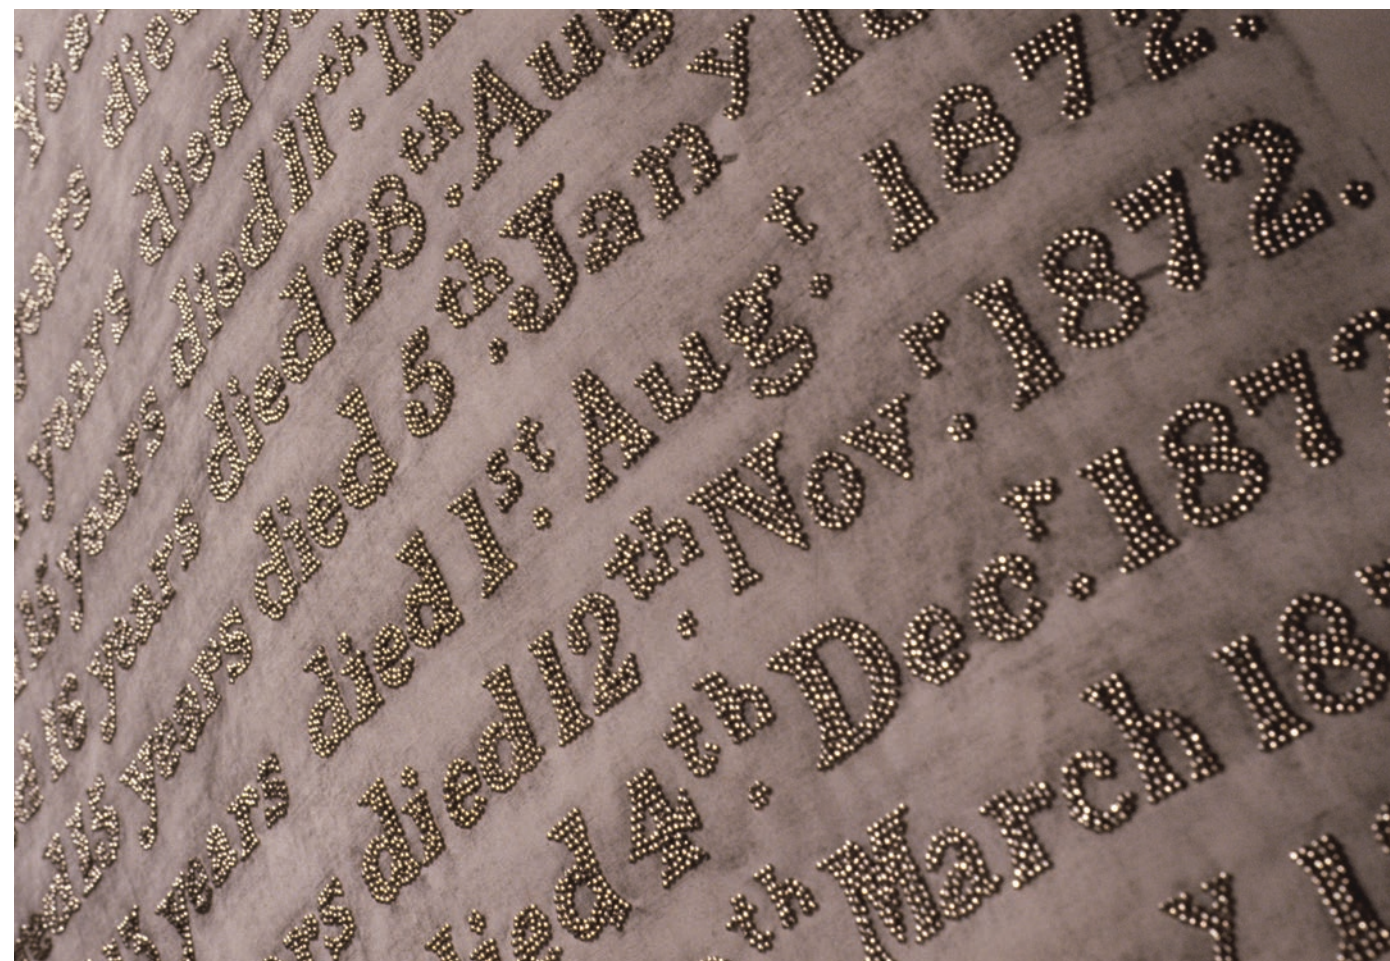 years die
years died
years died 11.th
16 years died 28.th Aug
aged 15 years died 5.th Jan.y 18
15 years died 1.st Aug.t 1872.
died 12.th Nov.r 1872.
died 4.th Dec.r 1872
th March 18
y 1